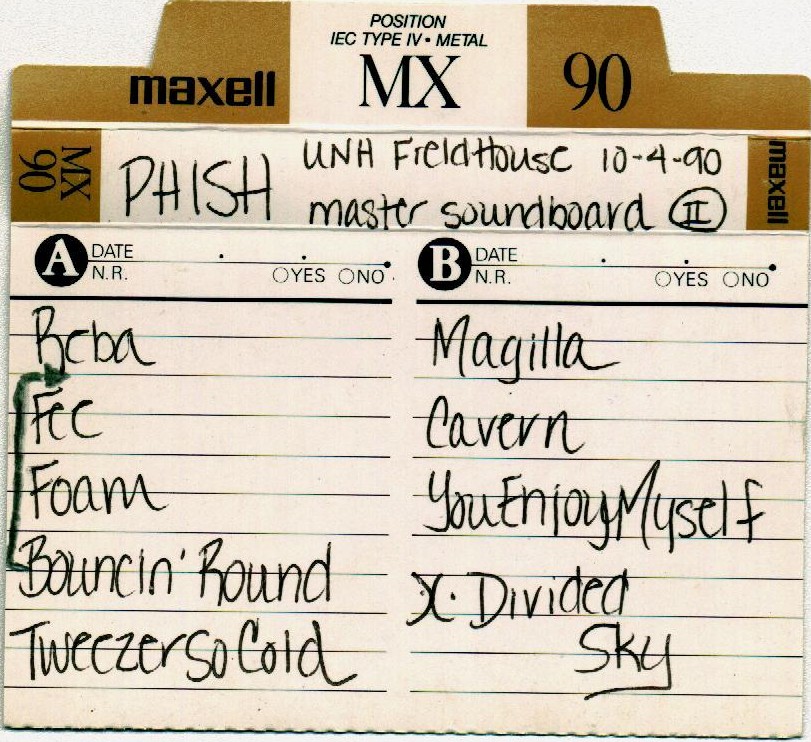 POSITION
IEC TYPE IV • METAL
maxell MX 90
MX 90 PHISH UNH FieldHouse 10-4-90 maxell
master soundboard II
A DATE
N.R. YES NO
Reba
Fee
Foam
Bouncin' Round
Tweezer so Cold
B DATE
N.R. YES NO
Magilla
Cavern
You Enjoy Myself
X. Divided
Sky